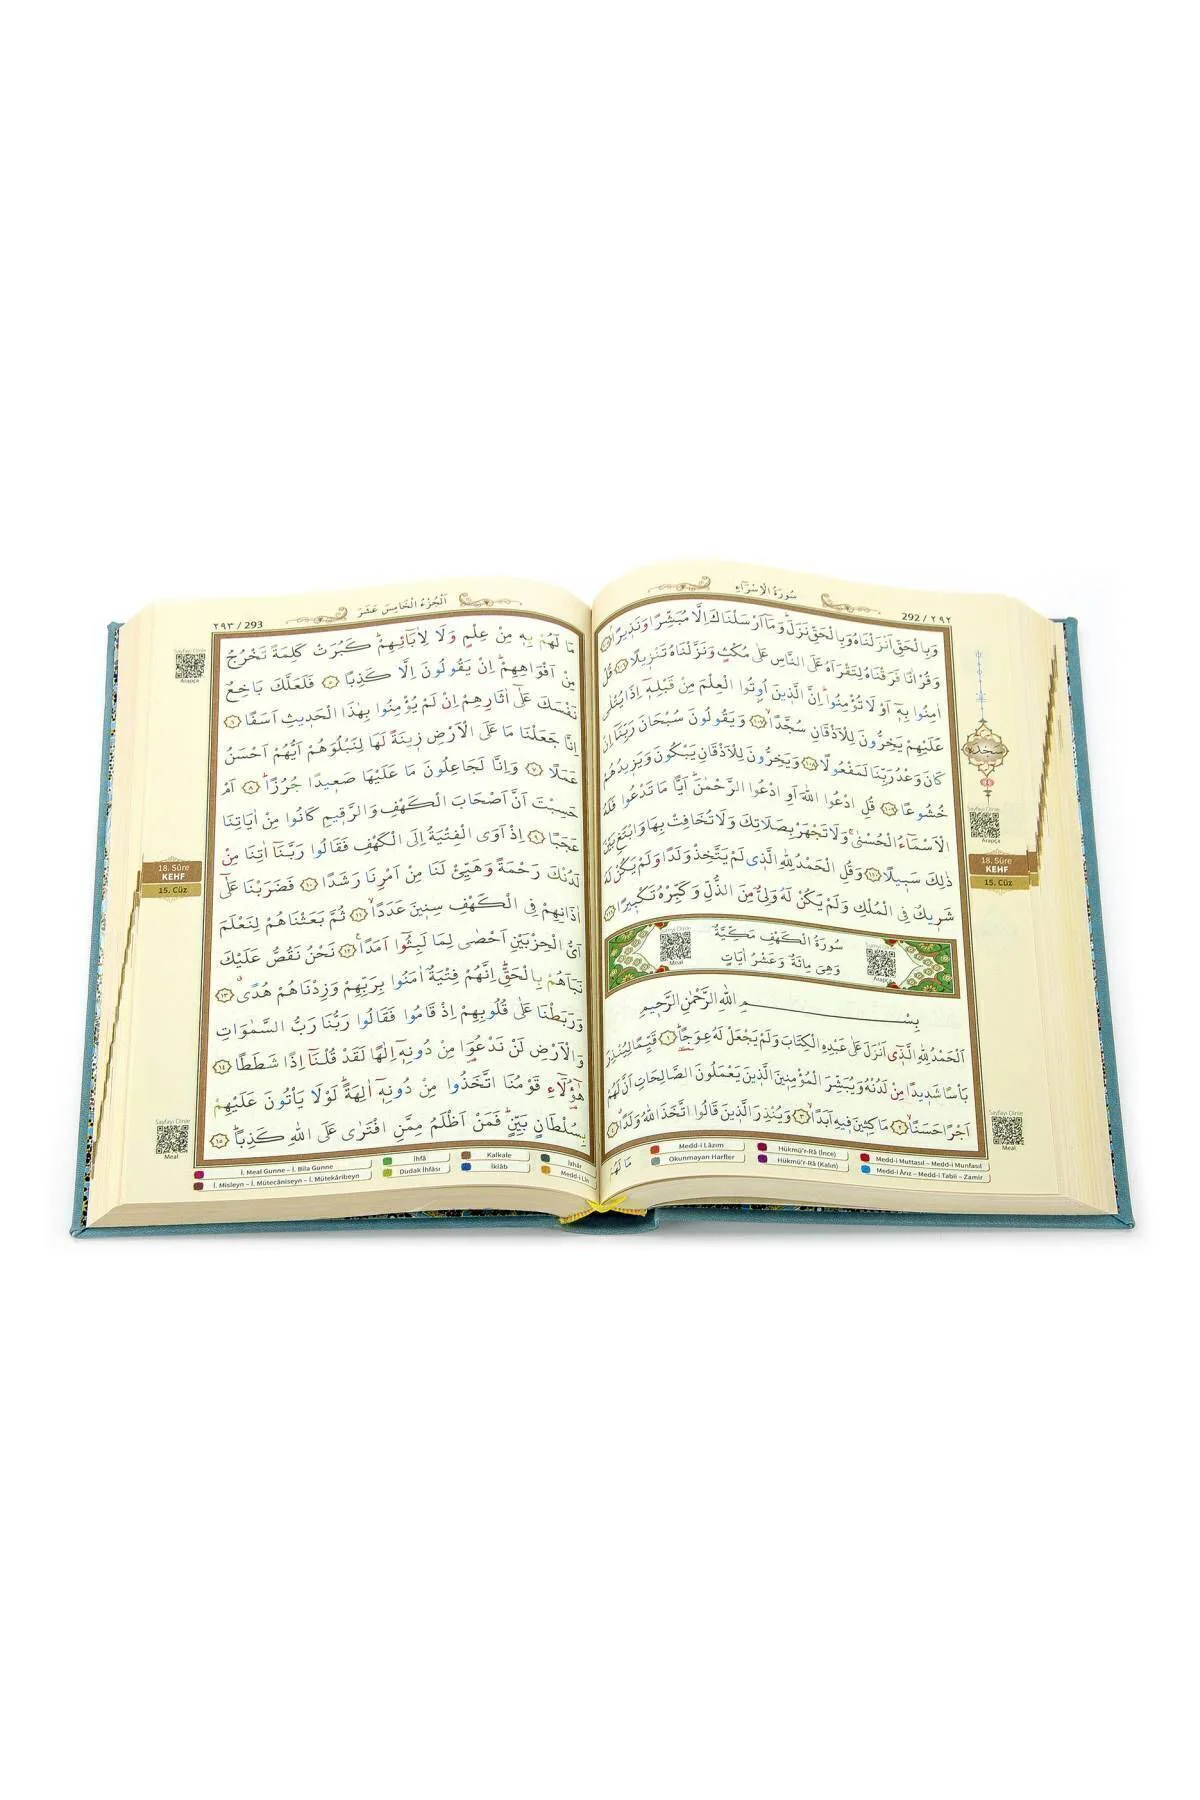 292 / ٢٩٢
سُورَةُ الْاِسْرَاءِ
وَبِالْحَقِّ اَنْزَلْنَاهُ وَبِالْحَقِّ نَزَلَۜ وَمَٓا اَرْسَلْنَاكَ اِلَّا مُبَشِّرًا وَنَذِيرًاۢ ﴿١٠٥﴾
وَقُرْاٰنًا فَرَقْنَاهُ لِتَقْرَاَهُ عَلَى النَّاسِ عَلٰى مُكْثٍ وَنَزَّلْنَاهُ تَنْزِيلًا ﴿١٠٦﴾ قُلْ
اٰمِنُوا بِه۪ٓ اَوْ لَا تُؤْمِنُواۜ اِنَّ الَّذ۪ينَ اُو۫تُوا الْعِلْمَ مِنْ قَبْلِه۪ٓ اِذَا يُتْلٰى
عَلَيْهِمْ يَخِرُّونَ لِلْاَذْقَانِ سُجَّدًاۙ ﴿١٠٧﴾ وَيَقُولُونَ سُبْحَانَ رَبِّنَٓا اِنْ
كَانَ وَعْدُ رَبِّنَا لَمَفْعُولًا ﴿١٠٨﴾ وَيَخِرُّونَ لِلْاَذْقَانِ يَبْكُونَ وَيَز۪يدُهُمْ
خُشُوعًا ﴿١٠٩﴾ قُلِ ادْعُوا اللّٰهَ اَوِ ادْعُوا الرَّحْمٰنَۜ اَيًّا مَا تَدْعُوا فَلَهُ
الْاَسْمَٓاءُ الْحُسْنٰىۚ وَلَا تَجْهَرْ بِصَلَاتِكَ وَلَا تُخَافِتْ بِهَا وَابْتَغِ بَيْنَ
ذٰلِكَ سَب۪يلًا ﴿١١٠﴾ وَقُلِ الْحَمْدُ لِلّٰهِ الَّذ۪ي لَمْ يَتَّخِذْ وَلَدًا وَلَمْ يَكُنْ لَهُ
شَر۪يكٌ فِي الْمُلْكِ وَلَمْ يَكُنْ لَهُ وَلِيٌّ مِنَ الذُّلِّ وَكَبِّرْهُ تَكْب۪يرًا ﴿١١١﴾
سُورَةُ الْكَهْفِ مَكِّيَّةٌ
وَهِيَ مِائَةٌ وَعَشْرُ اٰيَاتٍ
بِسْمِ اللّٰهِ الرَّحْمٰنِ الرَّح۪يمِ
اَلْحَمْدُ لِلّٰهِ الَّذ۪ٓي اَنْزَلَ عَلٰى عَبْدِهِ الْكِتَابَ وَلَمْ يَجْعَلْ لَهُ عِوَجًاۜ ﴿١﴾ قَيِّمًا لِيُنْذِرَ
بَأْسًا شَد۪يدًا مِنْ لَدُنْهُ وَيُبَشِّرَ الْمُؤْمِن۪ينَ الَّذ۪ينَ يَعْمَلُونَ الصَّالِحَاتِ اَنَّ لَهُمْ
اَجْرًا حَسَنًاۙ ﴿٢﴾ مَاكِث۪ينَ ف۪يهِ اَبَدًاۙ ﴿٣﴾ وَيُنْذِرَ الَّذ۪ينَ قَالُوا اتَّخَذَ اللّٰهُ وَلَدًاۗ ﴿٤﴾
مَا لَهُمْ
Medd-i Lâzım
Hükmü'r-Râ (İnce)
Medd-i Muttasıl – Medd-i Munfasıl
Okunmayan Harfler
Hükmü'r-Râ (Kalın)
Medd-i Ârız – Medd-i Tabii – Zamir
سجدة
٤
Sayfayı Dinle
Arapça
18. Sûre
KEHF
15. Cüz
Sayfayı Dinle
Meal
٢٩٣ / 293
اَلْجُزْءُ الْخَامِسَ عَشَرَ
مَا لَهُمْ بِه۪ مِنْ عِلْمٍ وَلَا لِاٰبَٓائِهِمْۜ كَبُرَتْ كَلِمَةً تَخْرُجُ
مِنْ اَفْوَاهِهِمْۜ اِنْ يَقُولُونَ اِلَّا كَذِبًا ﴿٥﴾ فَلَعَلَّكَ بَاخِعٌ
نَفْسَكَ عَلٰٓى اٰثَارِهِمْ اِنْ لَمْ يُؤْمِنُوا بِهٰذَا الْحَد۪يثِ اَسَفًا ﴿٦﴾
اِنَّا جَعَلْنَا مَا عَلَى الْاَرْضِ ز۪ينَةً لَهَا لِنَبْلُوَهُمْ اَيُّهُمْ اَحْسَنُ
عَمَلًا ﴿٧﴾ وَاِنَّا لَجَاعِلُونَ مَا عَلَيْهَا صَع۪يدًا جُرُزًاۜ ﴿٨﴾ اَمْ
حَسِبْتَ اَنَّ اَصْحَابَ الْكَهْفِ وَالرَّق۪يمِ كَانُوا مِنْ اٰيَاتِنَا
عَجَبًا ﴿٩﴾ اِذْ اَوَى الْفِتْيَةُ اِلَى الْكَهْفِ فَقَالُوا رَبَّنَٓا اٰتِنَا مِنْ
لَدُنْكَ رَحْمَةً وَهَيِّئْ لَنَا مِنْ اَمْرِنَا رَشَدًا ﴿١٠﴾ فَضَرَبْنَا عَلٰٓى
اٰذَانِهِمْ فِي الْكَهْفِ سِن۪ينَ عَدَدًاۙ ﴿١١﴾ ثُمَّ بَعَثْنَاهُمْ لِنَعْلَمَ
اَيُّ الْحِزْبَيْنِ اَحْصٰى لِمَا لَبِثُٓوا اَمَدًا۟ ﴿١٢﴾ نَحْنُ نَقُصُّ عَلَيْكَ
نَبَاَهُمْ بِالْحَقِّۜ اِنَّهُمْ فِتْيَةٌ اٰمَنُوا بِرَبِّهِمْ وَزِدْنَاهُمْ هُدًىۗ ﴿١٣﴾
وَرَبَطْنَا عَلٰى قُلُوبِهِمْ اِذْ قَامُوا فَقَالُوا رَبُّنَا رَبُّ السَّمٰوَاتِ
وَالْاَرْضِ لَنْ نَدْعُوَ۬ا مِنْ دُونِه۪ٓ اِلٰهًا لَقَدْ قُلْنَٓا اِذًا شَطَطًا ﴿١٤﴾
هٰٓؤُ۬لَٓاءِ قَوْمُنَا اتَّخَذُوا مِنْ دُونِه۪ٓ اٰلِهَةًۜ لَوْلَا يَأْتُونَ عَلَيْهِمْ
بِسُلْطَانٍ بَيِّنٍۜ فَمَنْ اَظْلَمُ مِمَّنِ افْتَرٰى عَلَى اللّٰهِ كَذِبًاۜ ﴿١٥﴾
İ. Meal Gunne – İ. Bila Gunne
İhfâ
Kalkale
İzhâr
İ. Misleyn – İ. Mütecâniseyn – İ. Mütekâribeyn
Dudak İhfâsı
İklâb
Sayfayı Dinle
Arapça
18. Sûre
KEHF
15. Cüz
Sayfayı Dinle
Meal